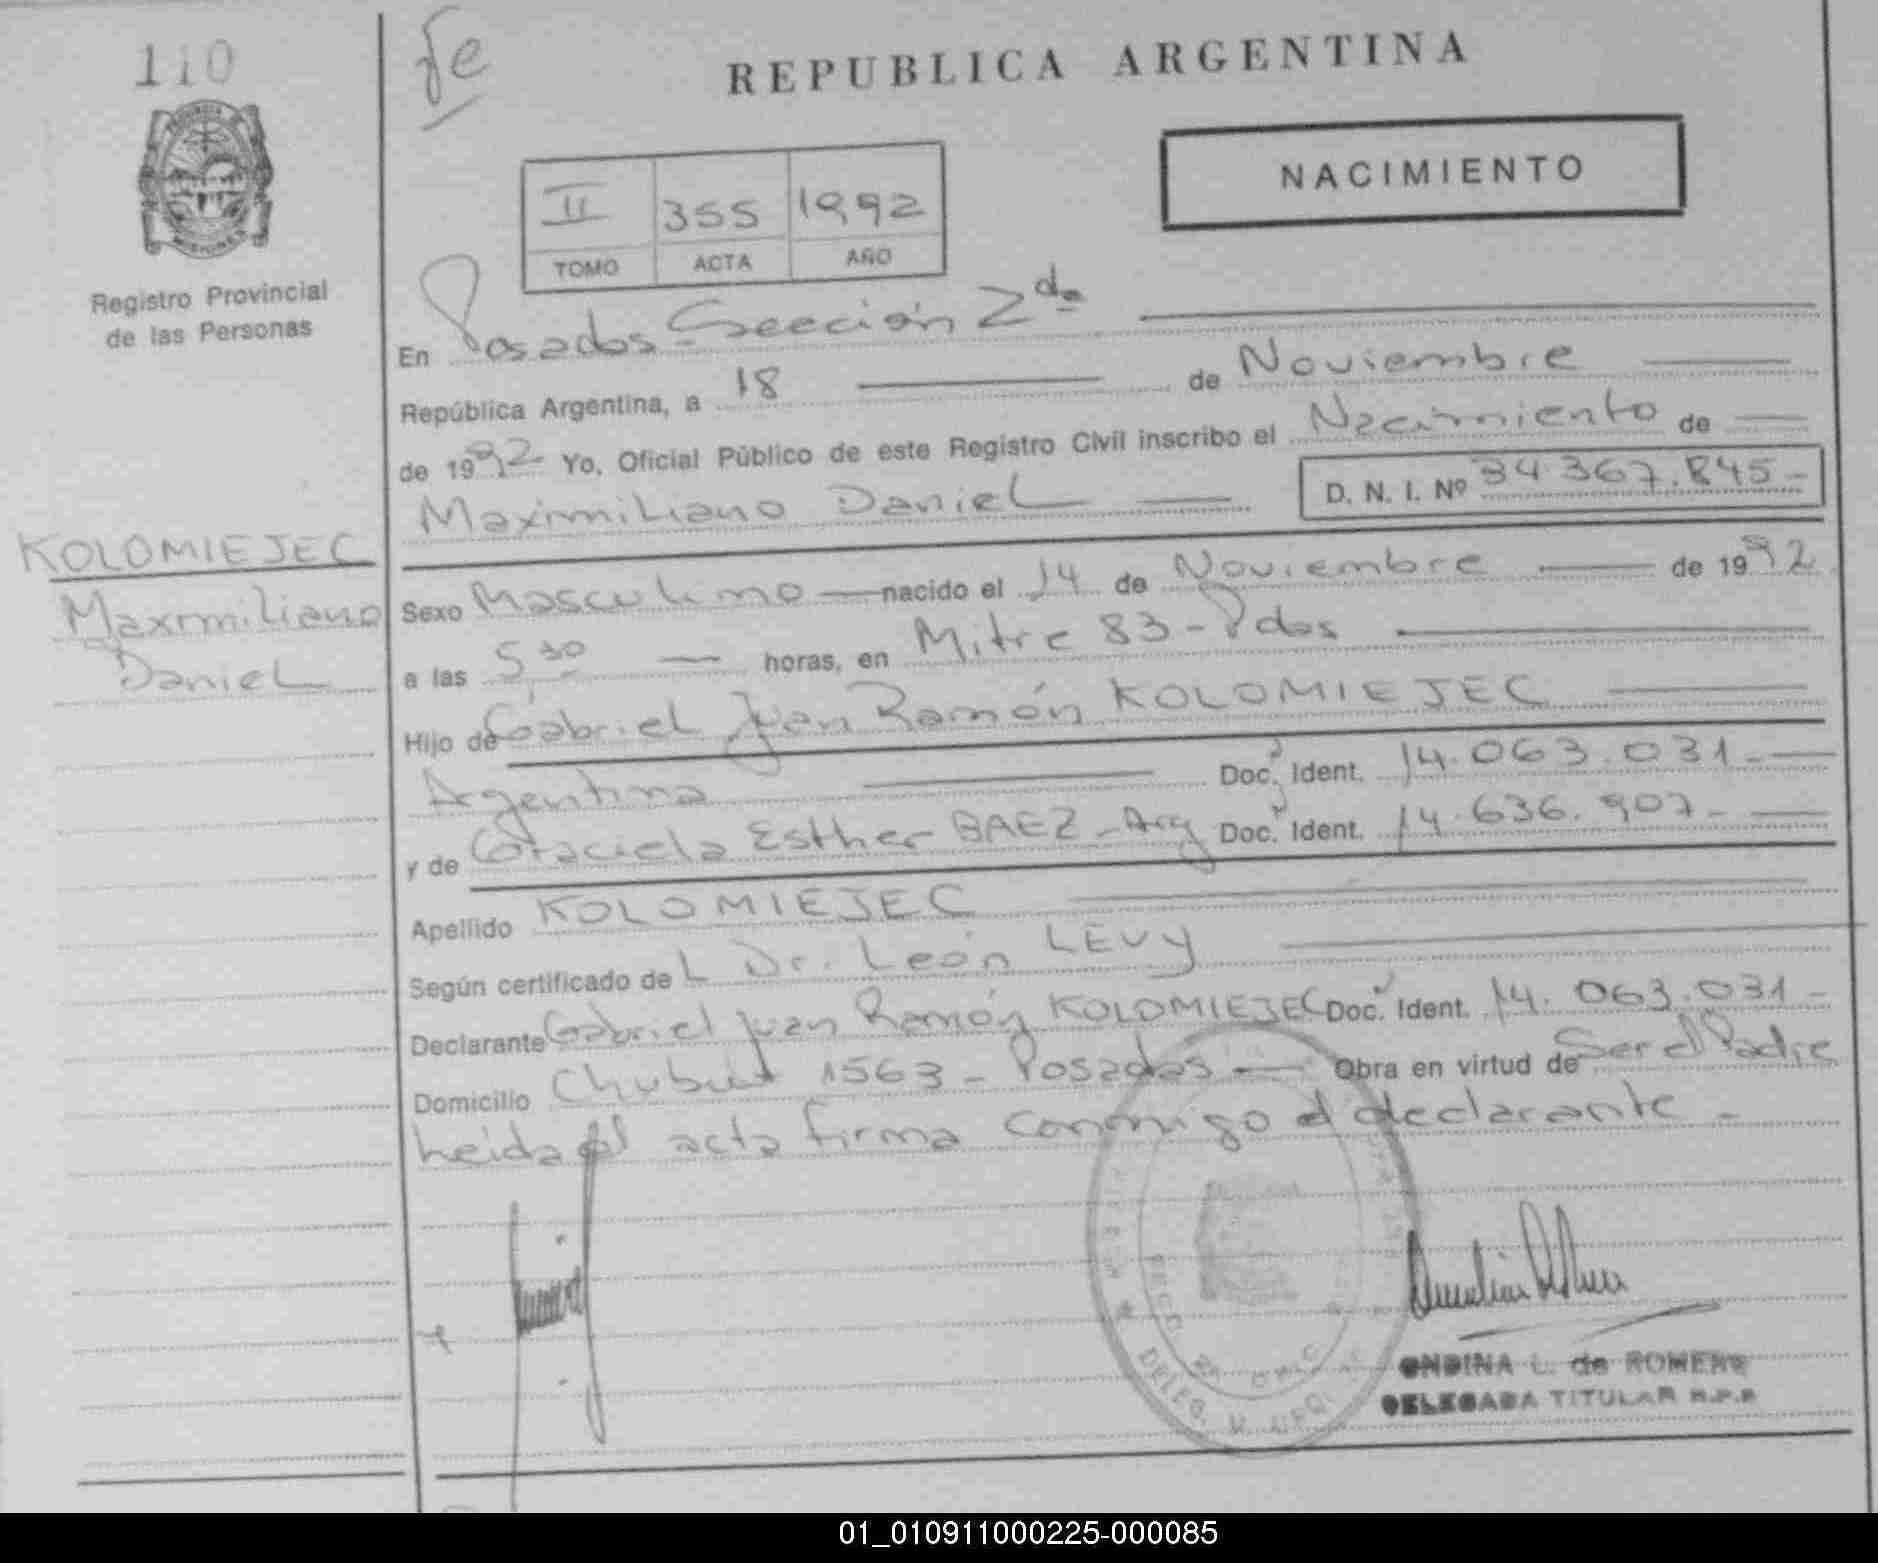 110
fe
REPUBLICA ARGENTINA
NACIMIENTO
II 355 1992
TOMO ACTA AÑO
Registro Provincial
de las Personas
En Posadas - Sección 2da
República Argentina, a 18 de Noviembre
de 1992 Yo, Oficial Público de este Registro Civil inscribo el Nacimiento de
Maximiliano Daniel D. N. I. Nº 34.367.845-
KOLOMIEJEC
Maximiliano
Daniel
Sexo Masculino nacido el 14 de Noviembre de 1992
a las 5 30 horas, en Mitre 83 - Pdas
Hijo de Gabriel Juan Ramón KOLOMIEJEC
Argentina Doc. Ident. 14.063.031-
y de Graciela Esther BAEZ - Arg Doc. Ident. 14.636.907-
Apellido KOLOMIEJEC
Según certificado del Dr. León LEVY
Declarante Gabriel Juan Ramón KOLOMIEJEC Doc. Ident. 14.063.031-
Domicilio Chubut 1563 - Posadas - Obra en virtud de Ser el Padre
Leida el acta firma conmigo el declarante -
ONDINA L. de ROMERO
DELEGADA TITULAR R.P.P.
DELEG.
01_010911000225-000085